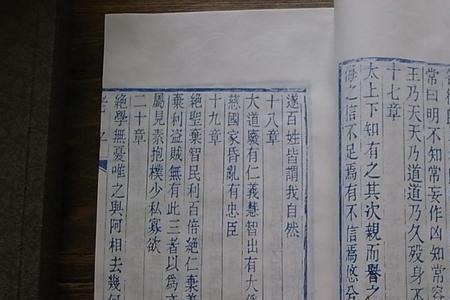 常曰明不知常妄作凶知常容
王乃天天乃道道乃久歿身不
十七章
太上下知有之其次親而譽之
侮之信不足焉有不信焉悠兮
遂百姓皆謂我自然
十八章
大道廢有仁義慧智出有大偽
慈國家昏亂有忠臣
十九章
絕聖棄智民利百倍絕仁棄義
棄利盜賊無有此三者以為
屬見素抱樸少私寡欲
二十章
絕學無憂唯之與阿相去幾何